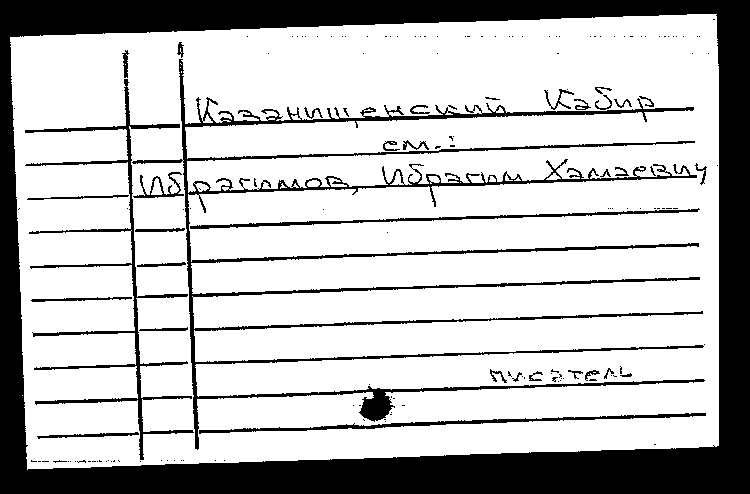 Казанищенский Кабир
см.:
Ибрагимов, Ибрагим Хамаевич
писатель